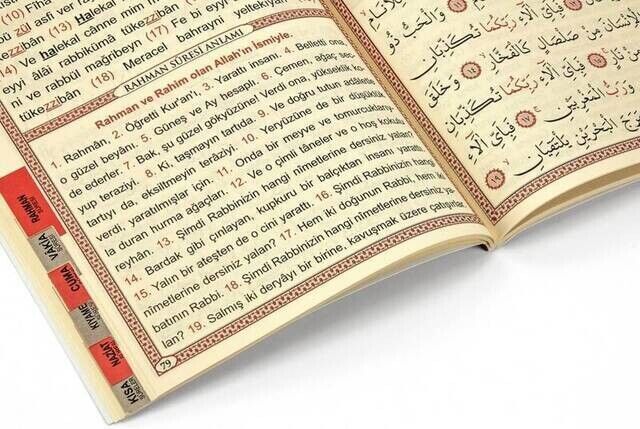 zül asfi ver
(14) Ve halekal cânne mim
eyyi âlâi rabbikümâ tükezzibân
ve rabbül mağribeyn (17) Fe bi eyyi
tükezzibân (18) Meracel bahrayni yeltekiyân
RAHMAN SÛRESİ ANLAMI
Rahman ve Rahim olan Allah'ın ismiyle.
1. Rahmân, 2. Öğretti Kur'an'ı, 3. Yarattı insanı. 4. Belletti ona,
o güzel beyânı. 5. Güneş ve Ay hesaplı. 6. Çemen, ağaç sec-
de ederler. 7. Bak, şu güzel gökyüzüne! Verdi ona, yükseklik ko-
yup teraziyi. 8. Ki, taşmayın tartıda. 9. Ve doğru tutun adâletle
tartıyı da, eksiltmeyin terâziyi. 10. Yeryüzüne de bir düşüklük
verdi, yaratılmışlar için. 11. Onda bir meyve ve tomurcuklarıy-
la duran hurma ağaçları. 12. Ve o çimli tâneler ve o hoş kokulu
reyhân. 13. Şimdi Rabbinizin hangi nîmetlerine dersiniz yalan?
14. Bardak gibi çınlayan, kupkuru bir balçıktan insanı yarattı.
15. Yalın bir ateşten de o cini yarattı. 16. Şimdi Rabbinizin hangi
nîmetlerine dersiniz yalan? 17. Hem iki doğunun Rabbi, hem iki
batının Rabbi. 18. Şimdi Rabbinizin hangi nîmetlerine dersiniz ya-
lan? 19. Salmış iki deryâyı bir birine, kavuşmak üzere çatışırlar
79
RAHMAN SÛRESİ
VÂKIA
CUMA
KIYAME
NAZİAT
KISA SÛRELER
مِنْ صَلْصَالٍ كَالْفَخَّارِ ۝١٤ وَخَلَقَ
فَبِاَيِّ اٰلَٓاءِ رَبِّكُمَا تُكَذِّبَانِ
وَرَبُّ الْمَغْرِبَيْنِ ۝١٧ فَبِاَيِّ اٰلَٓاءِ
الْبَحْرَيْنِ يَلْتَقِيَانِ ۝١٩